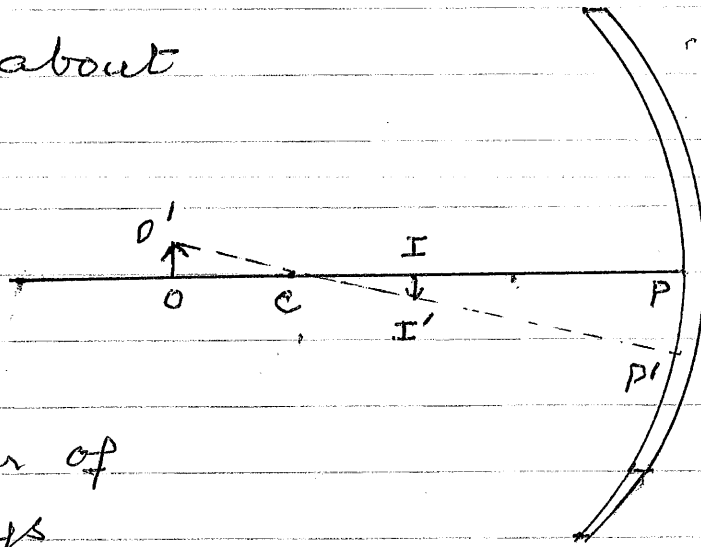 about
O'
I
O
C
P
I'
P'
of